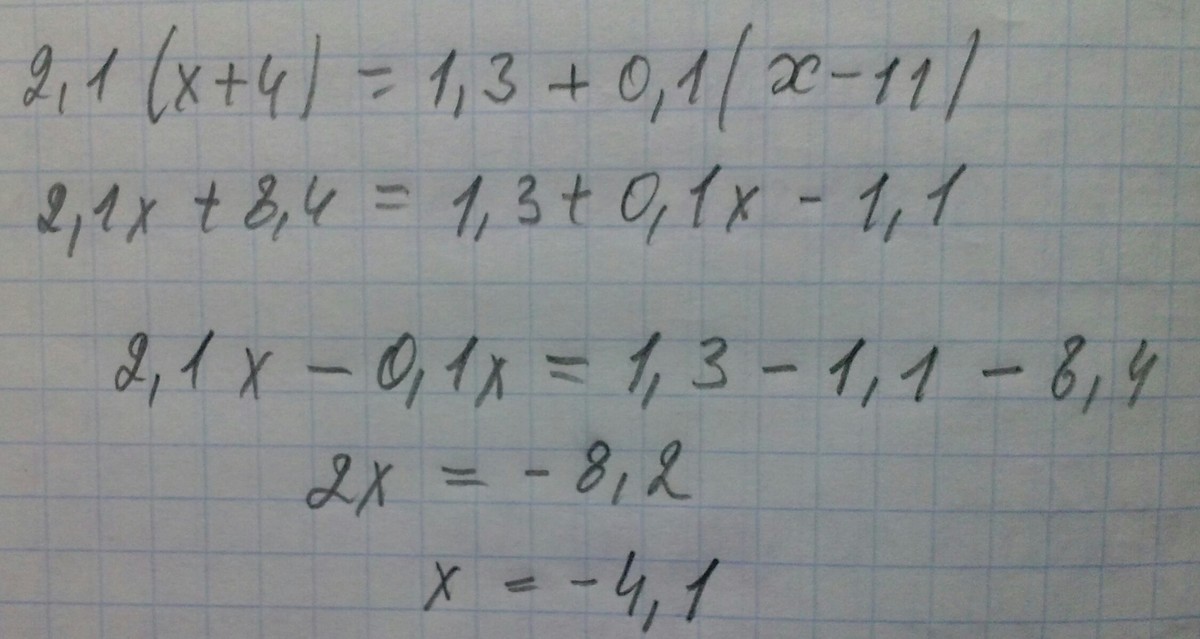 2,1 (x+4) = 1,3 + 0,1 (x-11)
2,1x + 8,4 = 1,3 + 0,1x - 1,1
2,1x - 0,1x = 1,3 - 1,1 - 8,4
2x = -8,2
x = -4,1